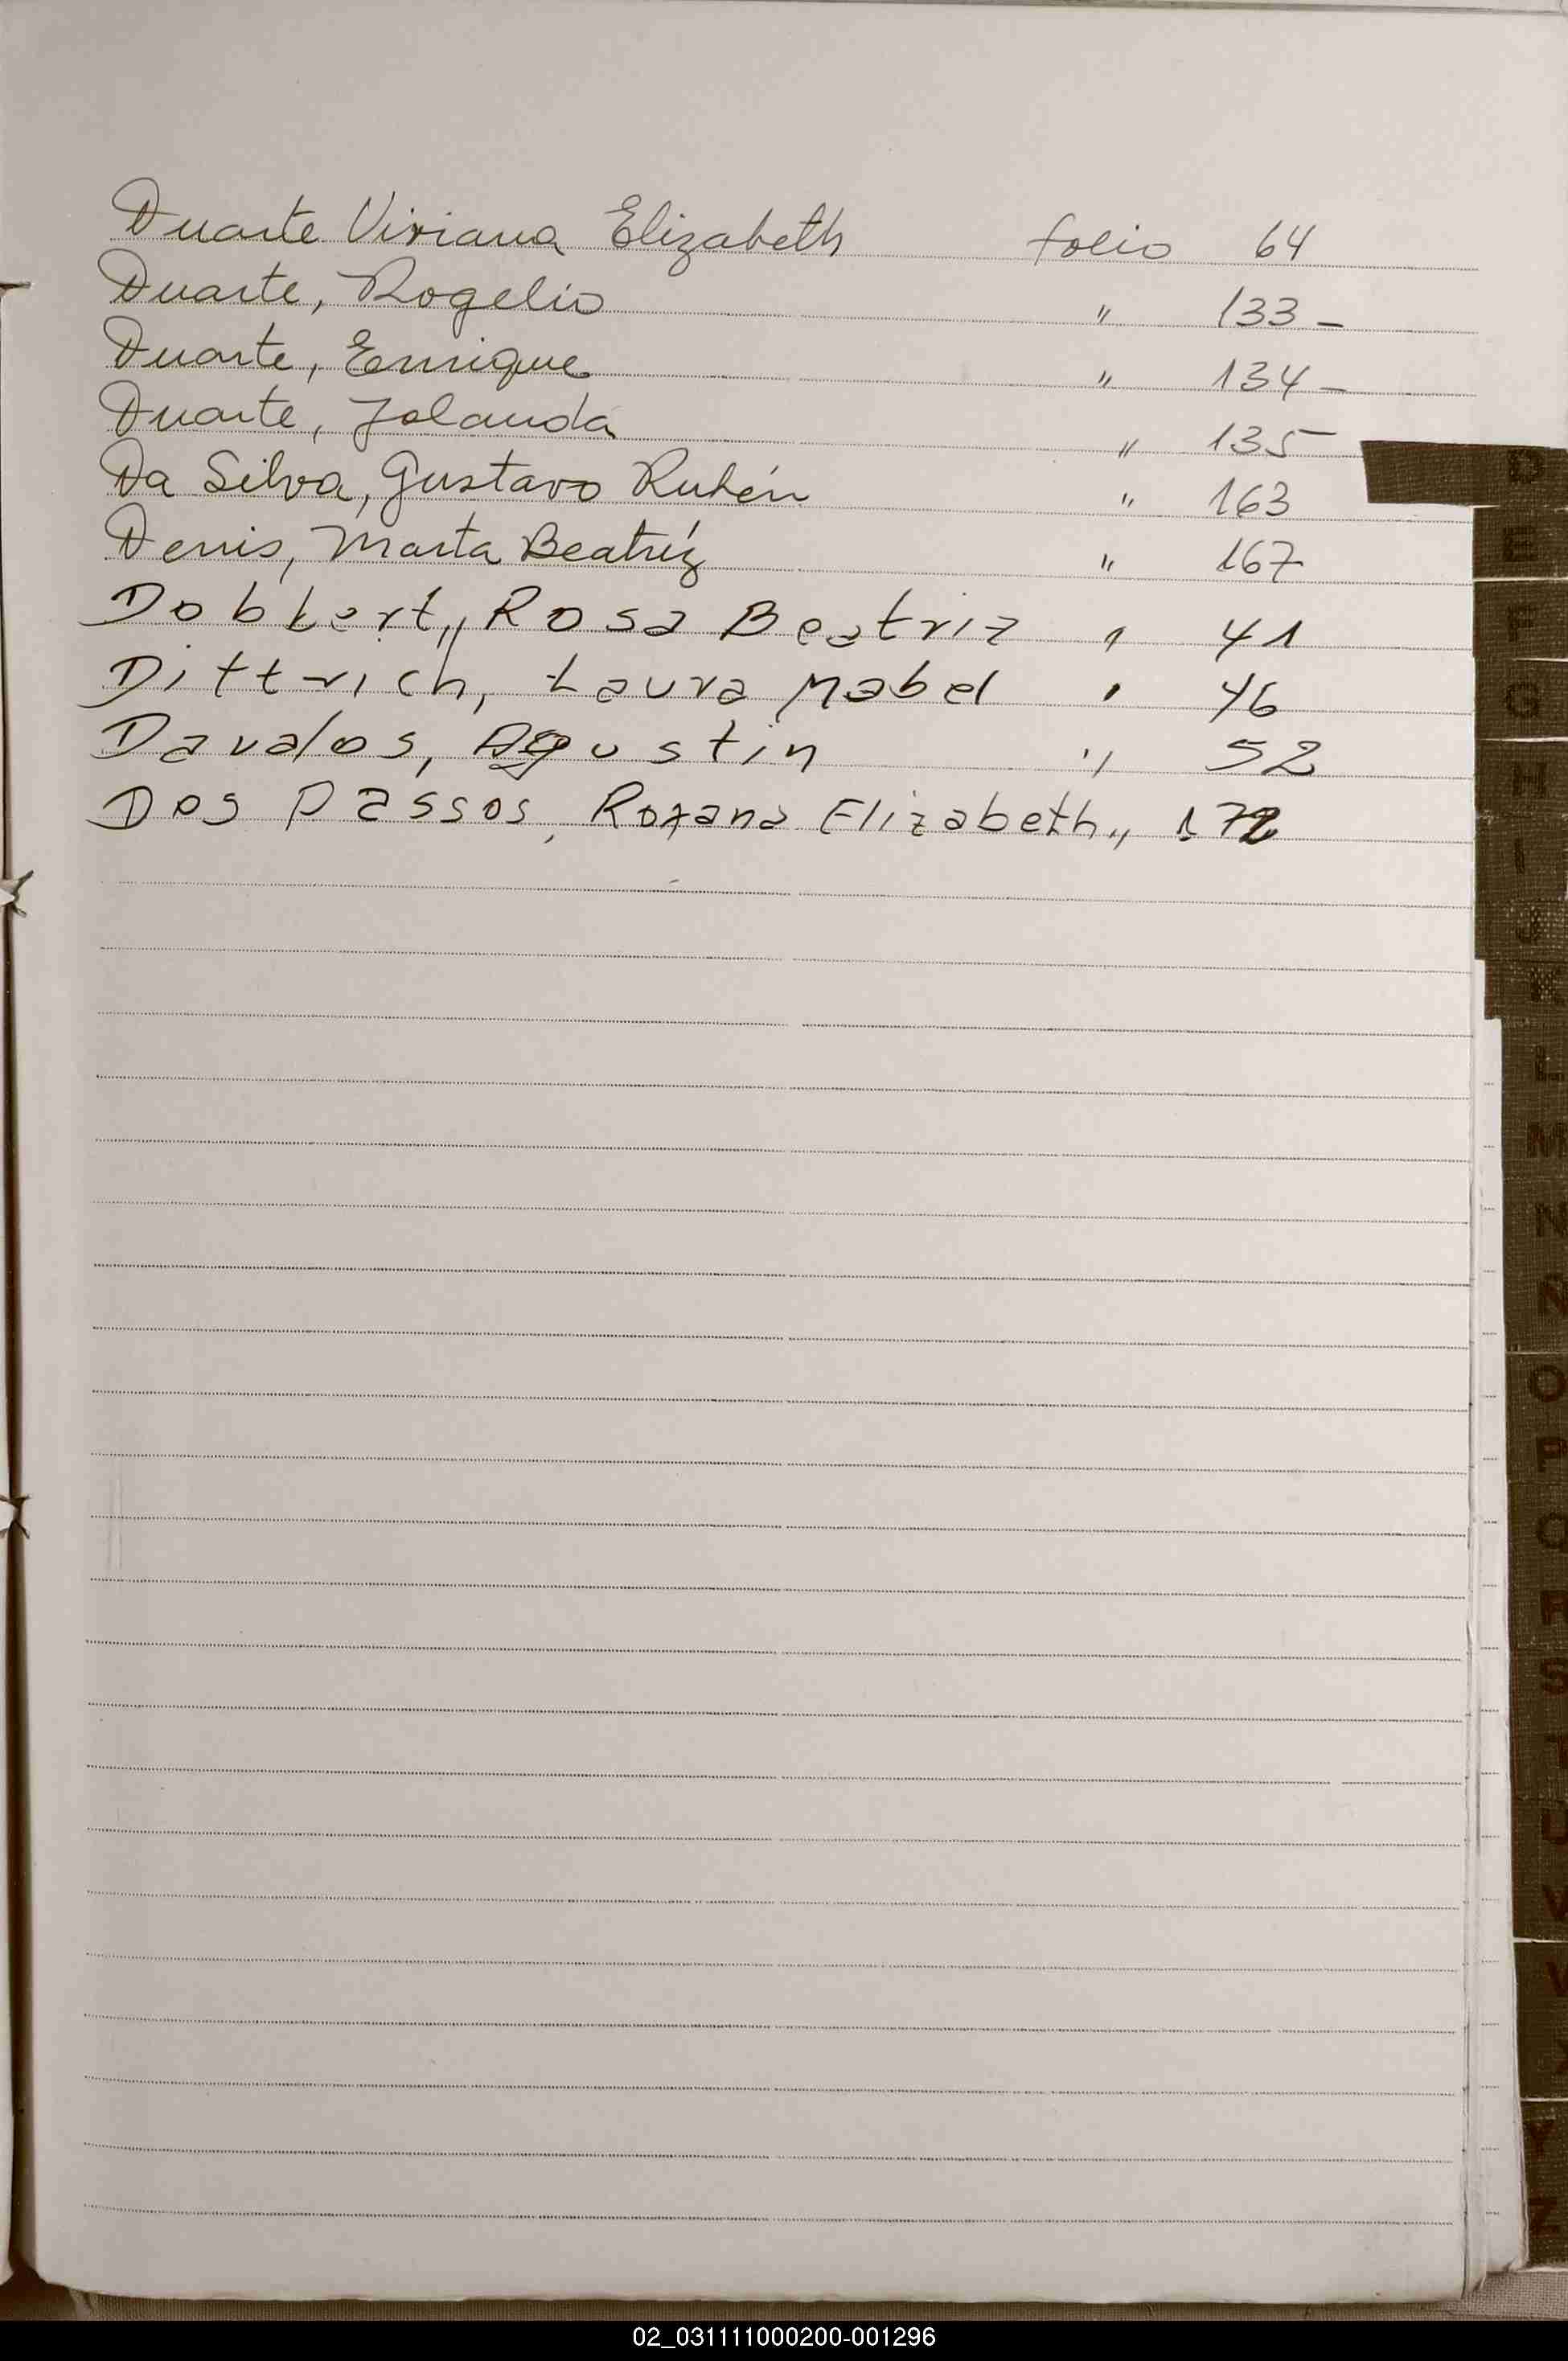 Duarte Viviana Elizabeth folio 64
Duarte, Rogelio " 133 -
Duarte, Enrique " 134 -
Duarte, Yolanda " 135 -
Da Silva, Gustavo Rubén " 163
Denis, Marta Beatríz " 167
Dobbert, Rosa Beatriz " 41
Dittrich, Laura Mabel " 46
Davalos, Agustin " 52
Dos Passos, Roxana Elizabeth " 172
D
E
F
G
H
I
J
K
L
M
N
Ñ
O
P
Q
R
S
T
U
V
W
X
Y
Z
02_031111000200-001296